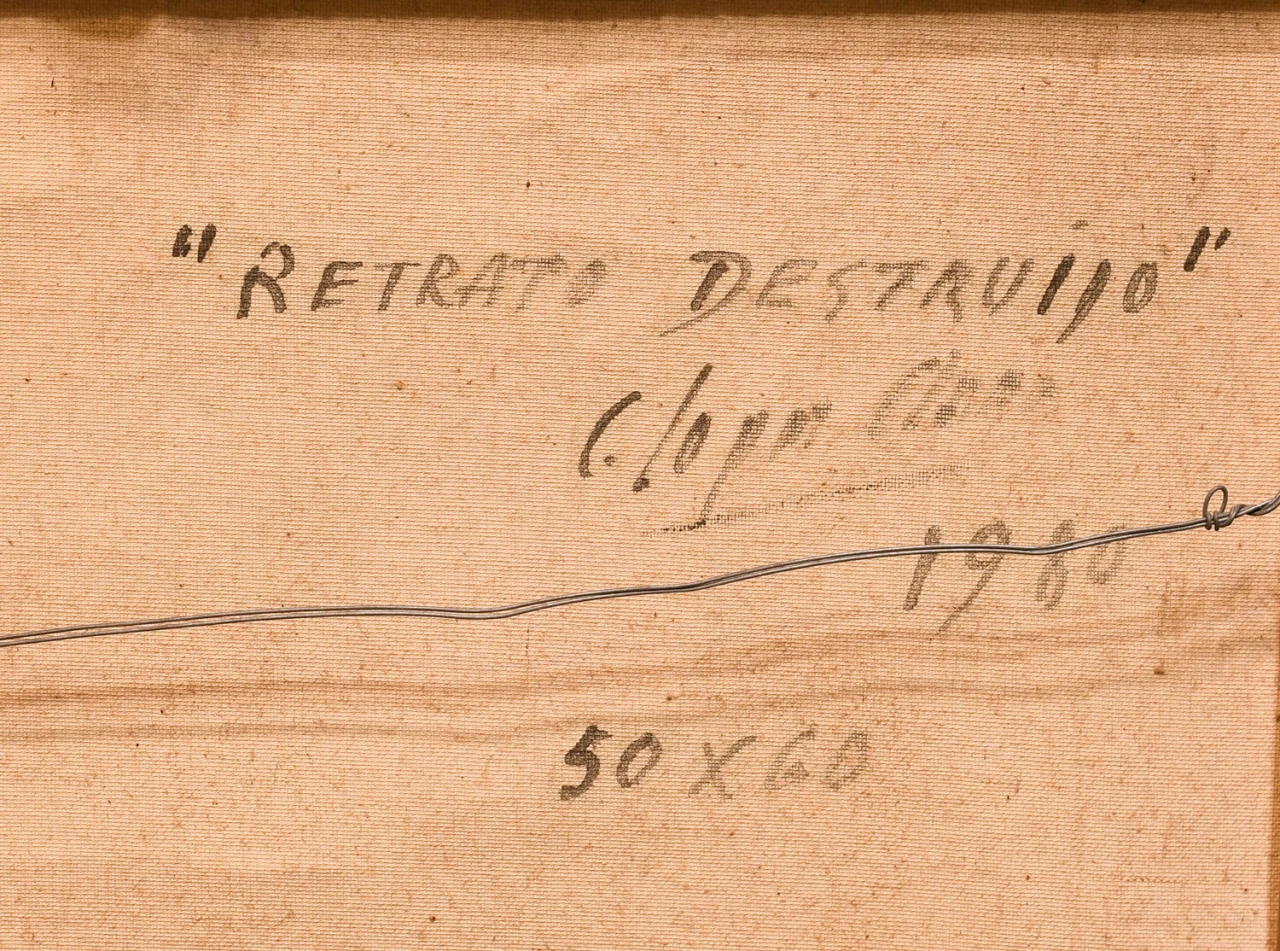 "RETRATO DESTRUIDO"
C. Lopez Claro
1980
50 X 60